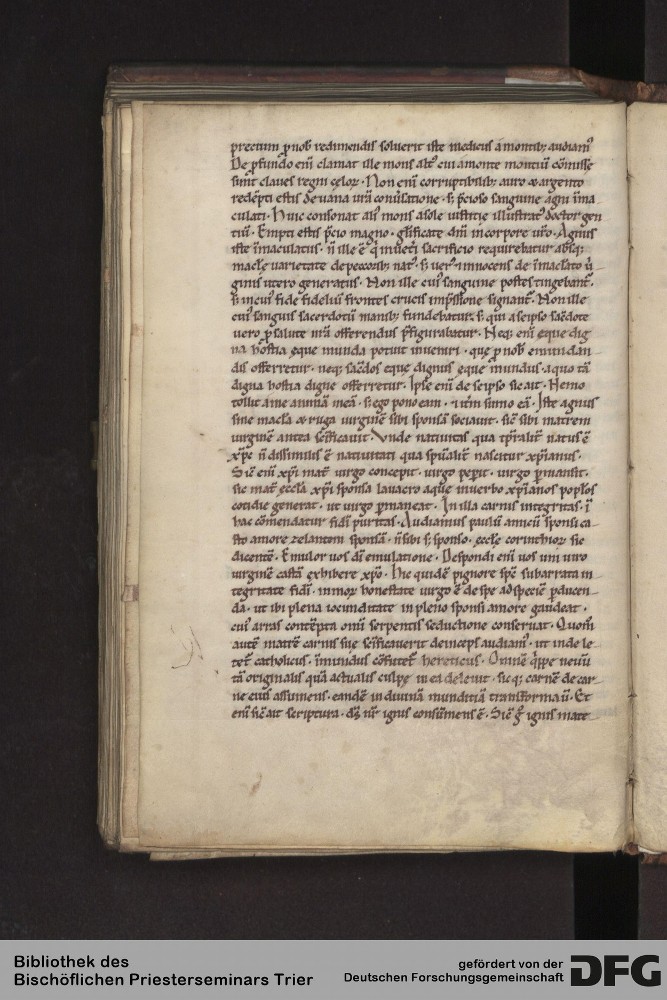 precium ꝓ nob̅ redimendis soluerit iste medicus a montib; audiam᷒
De ꝓfundo eni̅ clamat ille mons alt᷒ cui a monte montiu̅ co̅misse
sunt claues regni celoꝝ · Non eni̅ corruptibilib; auro & argento
rede̅pti estis de uana ur̅a conuersatione · s; p̅cioso sanguine agni i̅ma
culati · Huic consonat ali᷒ mons a sole iusticie illustrat᷒ doctor gen
tiu̅ · Empti estis p̅cio magno · glificate dm̅ in corpore ur̅o · Agnus
iste i̅maculatus · n̅ ille e̅ q̇ in ueti sacrificio requirebatur absq;
macle varietate de peccorib; nat᷒ · s; uer᷒ & innocens de i̅maclato ui
ginis utero generatus · Non ille cui᷒ sanguine postes tingebant᷑ ·
s; in cui᷒ fide fideliu̅ frontes crucis imp̅ssione signant᷑ · Non ille
cui᷒ sanguis sacerdotu̅ manib; fundebatur · s; qui a seipso sac̅dote
uero ꝓ salute nr̅a offerendus p̅figurabatur · Neq; eni̅ eque dig
na hostia eque munda potuit inueniri · que ꝓ nob̅ emundan
dis offerretur · neq; sac̅dos eque dignus eque mundus · a quo ta̅
digna hostia digne offerretur · Ipse eni̅ de seipso sic ait · Nemo
tollit a me anima̅ mea̅ · s; ego pono eam · & ite̅m sumo ea̅ · Iste agnus
sine macla & ruga uirgine̅ sibi sponsa̅ sociauit · sic̅ sibi matrem
uirgine̅ antea sc̅ificauit · Vnde natiuitas qua tp̅ralit᷑ natus e̅
xp̅c n̅ dissimilis e̅ natiuitati qua sp̅ualit᷑ nascitur xp̅ianus ·
Sic̅ eni̅ xp̅i mat᷑ uirgo concepit · uirgo peꝑit · uirgo ꝑmansit ·
sic mat᷑ eccla̅ xp̅i sponsa lauacro aque in uerbo xp̅ianos popl̅os
cotidie generat · ut uirgo ꝑmaneat · In illa carnis integritas · i̅
hac co̅mendatur fidei puritas · Audiamus paulu̅ amicu̅ sponsi ca
sto amore zelantem sponsa̅ · n̅ sibi s; sponso · eccle corinthioꝝ sic
dicente̅ · Emulor uos di̅ emulatione · Despondi eni̅ uos uni uiro
uirgine̅ casta̅ exhibere xp̅o · Hic quide̅ pignore spe̅ subarrata in
tegritate fidei · in moꝝ honestate uirgo e̅ de spe ad specie̅ ꝑducen
da · ut ibi plena iocunditate in pleno sponsi amore gaudeat ·
cui᷒ arras conte̅pta omni̅ serpentis seductione conseruat · Quom̅
aute̅ matre̅ carnis sue sc̅ificauerit deinceps audiam᷒ · ut inde le
tet᷑ catholicus · i̅mundus co̅futet᷑ hereticus · Omne̅ q̅ppe neuu̅
ta̅ originalis qua̅ actualis culpe in ea deleuit · sic q; carne̅ de car
ne eius assumens · eande̅ in diuina̅ mundicia̅ transformauit · Et
eni̅ sic ait scriptura · ds̅ nr̅ ignis consume̅ns e̅ · Sic̅ g̊ ignis mate
Bibliothek des
Bischöflichen Priesterseminars Trier
gefördert von der
Deutschen Forschungsgemeinschaft
DFG